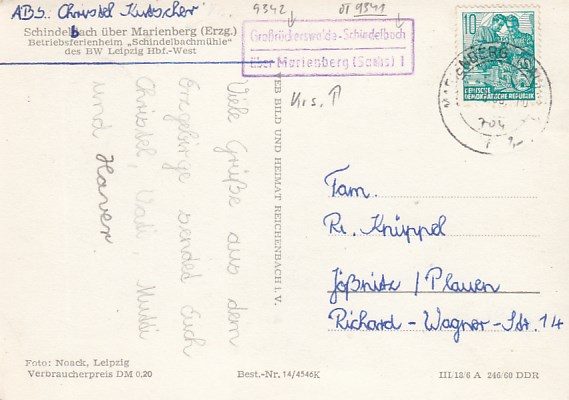 ABS. Christel Kutscher
Schindelbach über Marienberg (Erzg.)
Betriebsferienheim „Schindelbachmühle"
des BW Leipzig Hbf.-West
9342
OT 9341
Großrückerswalde-Schindelbach
über Marienberg (Sachs) 1
Krs. ↑
10
DEUTSCHE
DEMOKRATISCHE REPUBLIK
704
Viele Grüße aus dem
Erzgebirge sendet Euch
Christel, Vati, Mutti
und
VEB BILD UND HEIMAT REICHENBACH I. V.
Fam.
R. Knüppel
Jößnitz / Plauen
Richard-Wagner-Str. 14
Foto: Noack, Leipzig
Verbraucherpreis DM 0,20
Best.-Nr. 14/4546K
III/18/6 A 246/60 DDR